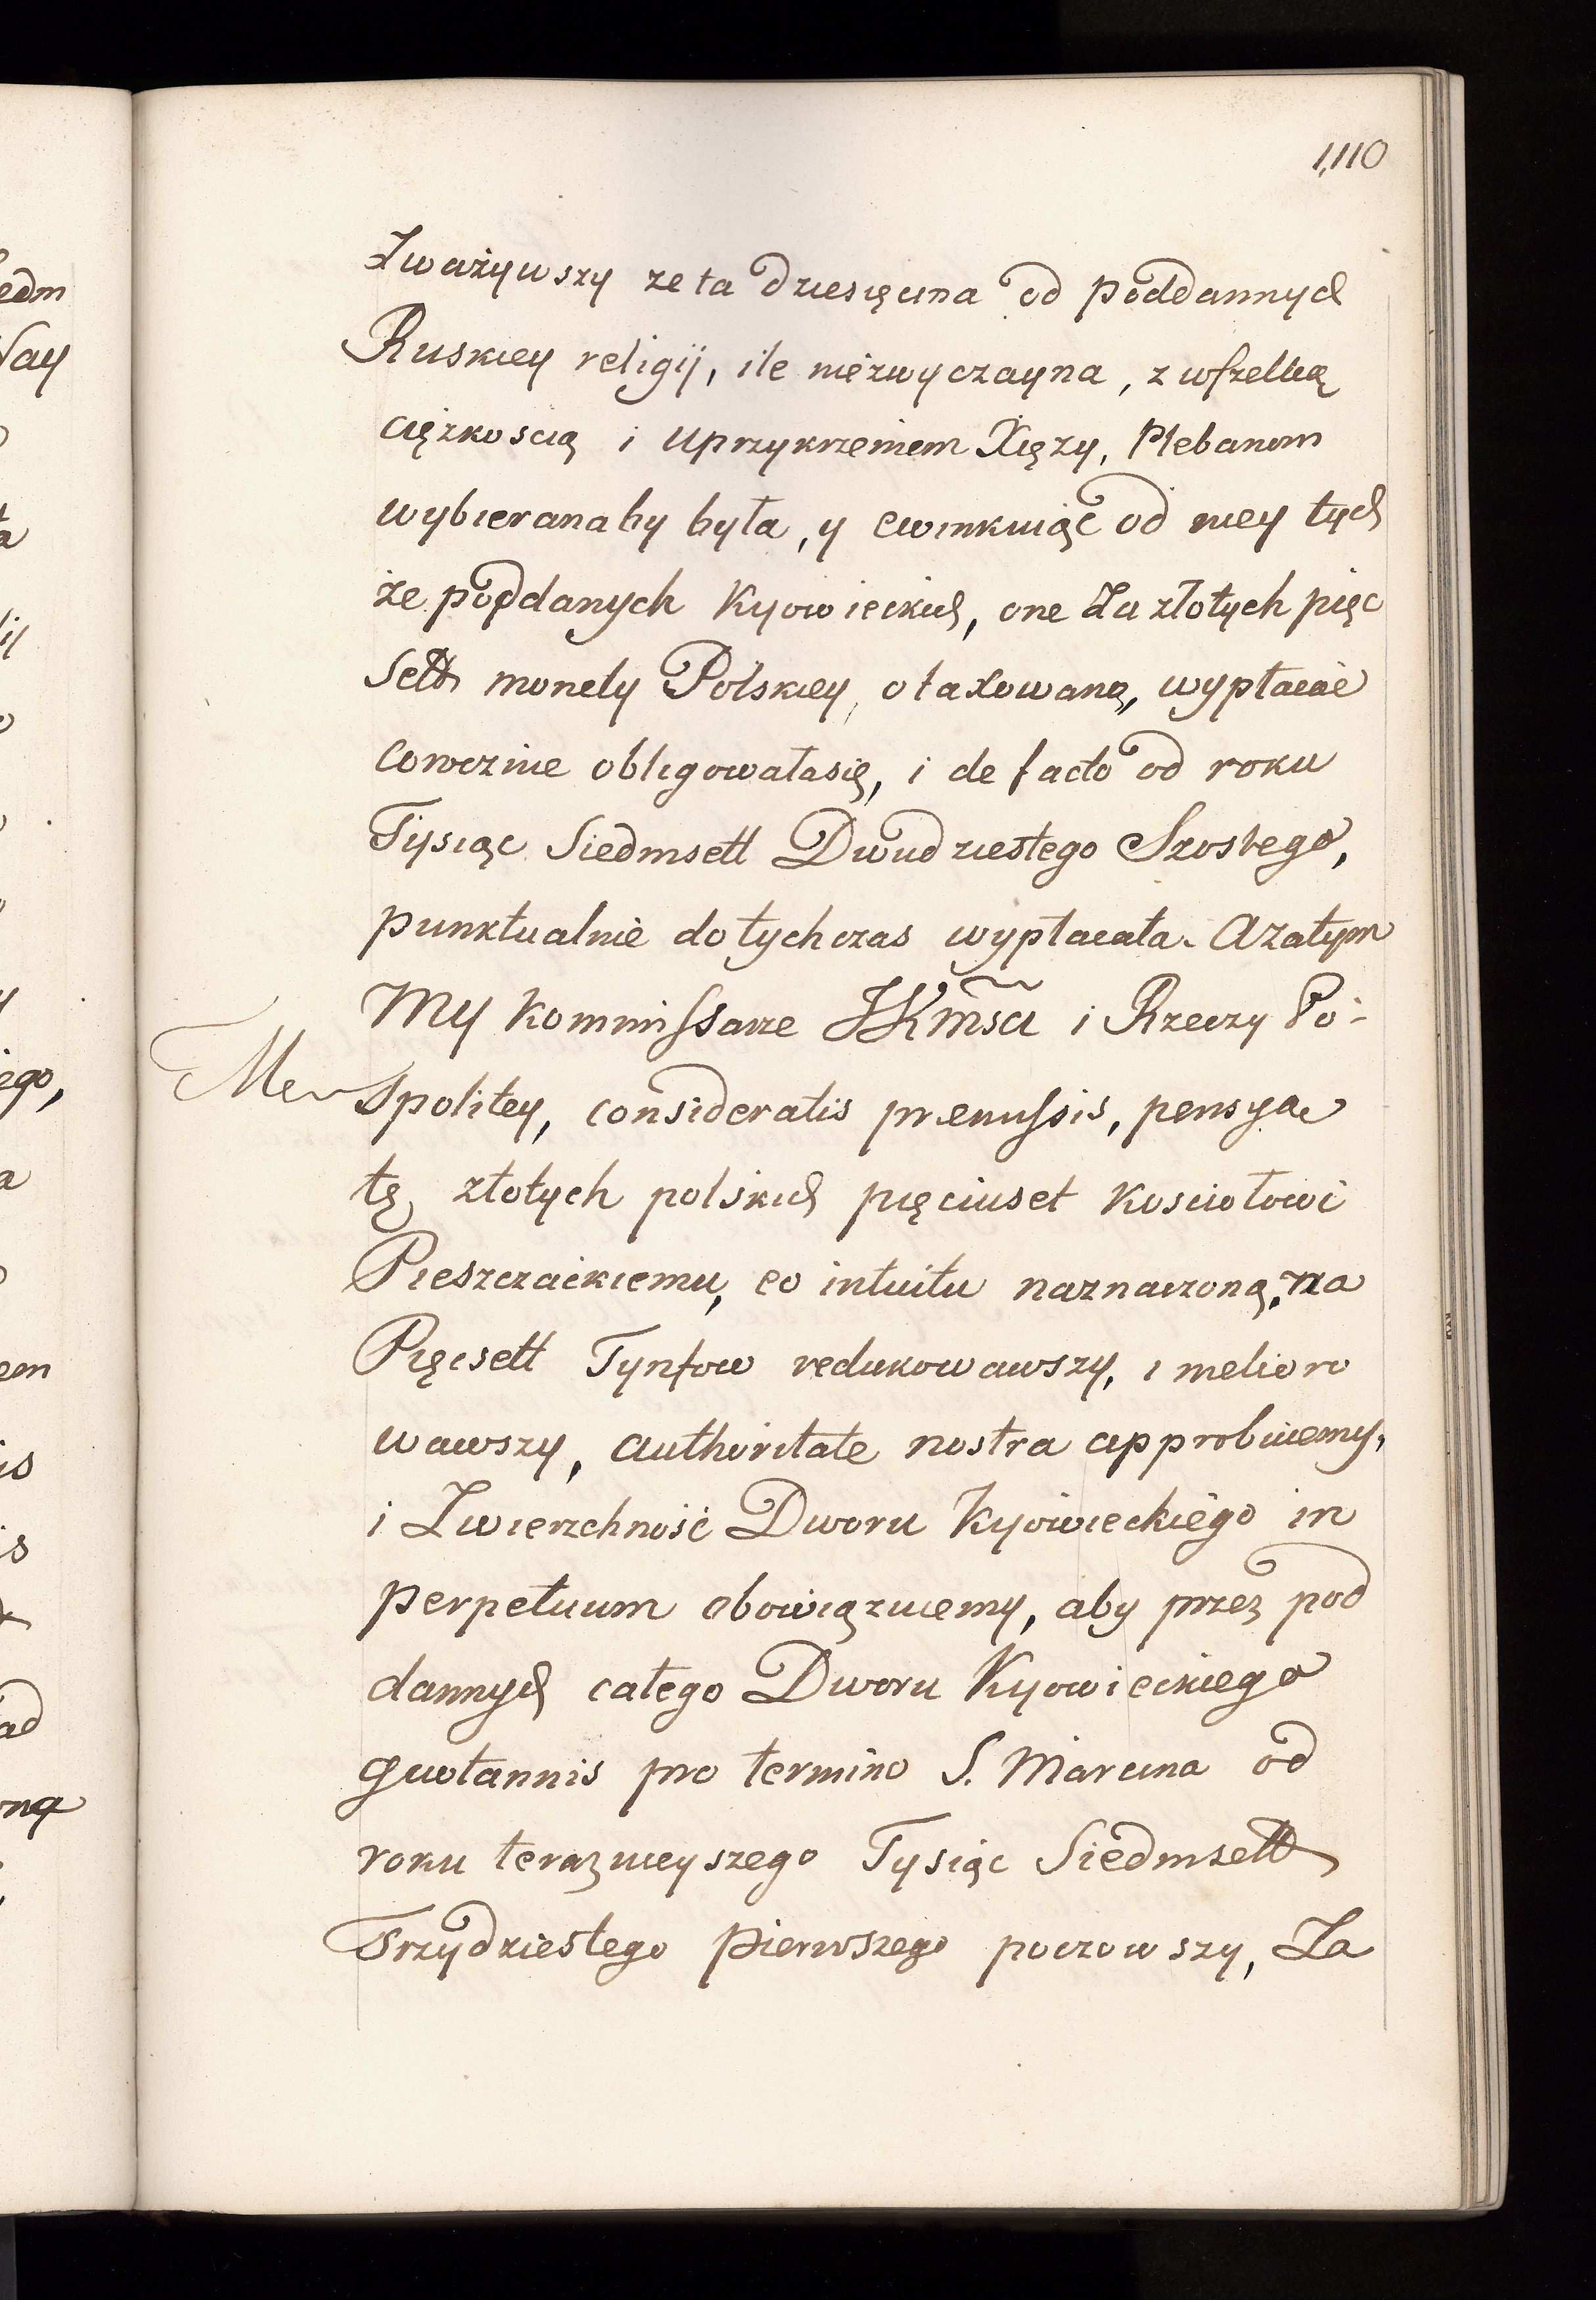 1,110
Zważywszy ze ta dziesięcina od poddannych
Ruskiey religij, ile niezwyczayna, z wszelką
ciężkoscią i uprzykrzeniem Xięzy, Plebanom
wybieranaby była, y ewinkuiąc od niey tych
że poddanych Kyowieckich, one Za złotych pięc
Sett monety Polskiey, otaxowaną, wypłacać
corocznie obligowałasię, i de facto od roku
Tysiąc Siedmsett Dwudziestego Szostego,
punktualnie dotychczas wypłacała. Azatym
My Kommissarze JKmsci i Rzeczy Po-
spolitey, consideratis premissis, pensyą
tę złotych polskich pięciuset Kosciołowi
Pieszczackiemu, eo intuitu naznaczoną, na
Pięcsett Tynfow redukowawszy, i melioro
wawszy, authoritate nostra approbuiemy,
i Zwierzchność Dworu Kyowieckiego in
perpetuum obowiązuiemy, aby przez pod
dannych całego Dworu Kyowieckiego
quotannis pro termino S. Marcina od
roku teraznieyszego Tysiąc Siedmsett
Trzydziestego pierwszego poczowszy, Za